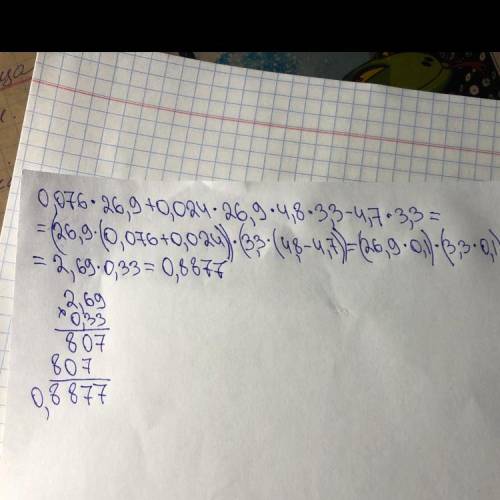 0,076·26,9+0,024·26,9·4,8·3,3-4,7·3,3=
=(26,9·(0,076+0,024))·(3,3·(4,8-4,7)=(26,9·0,1)·(3,3·0,1)
=2,69·0,33=0,8877
2,69
×0,33
807
807
0,8877